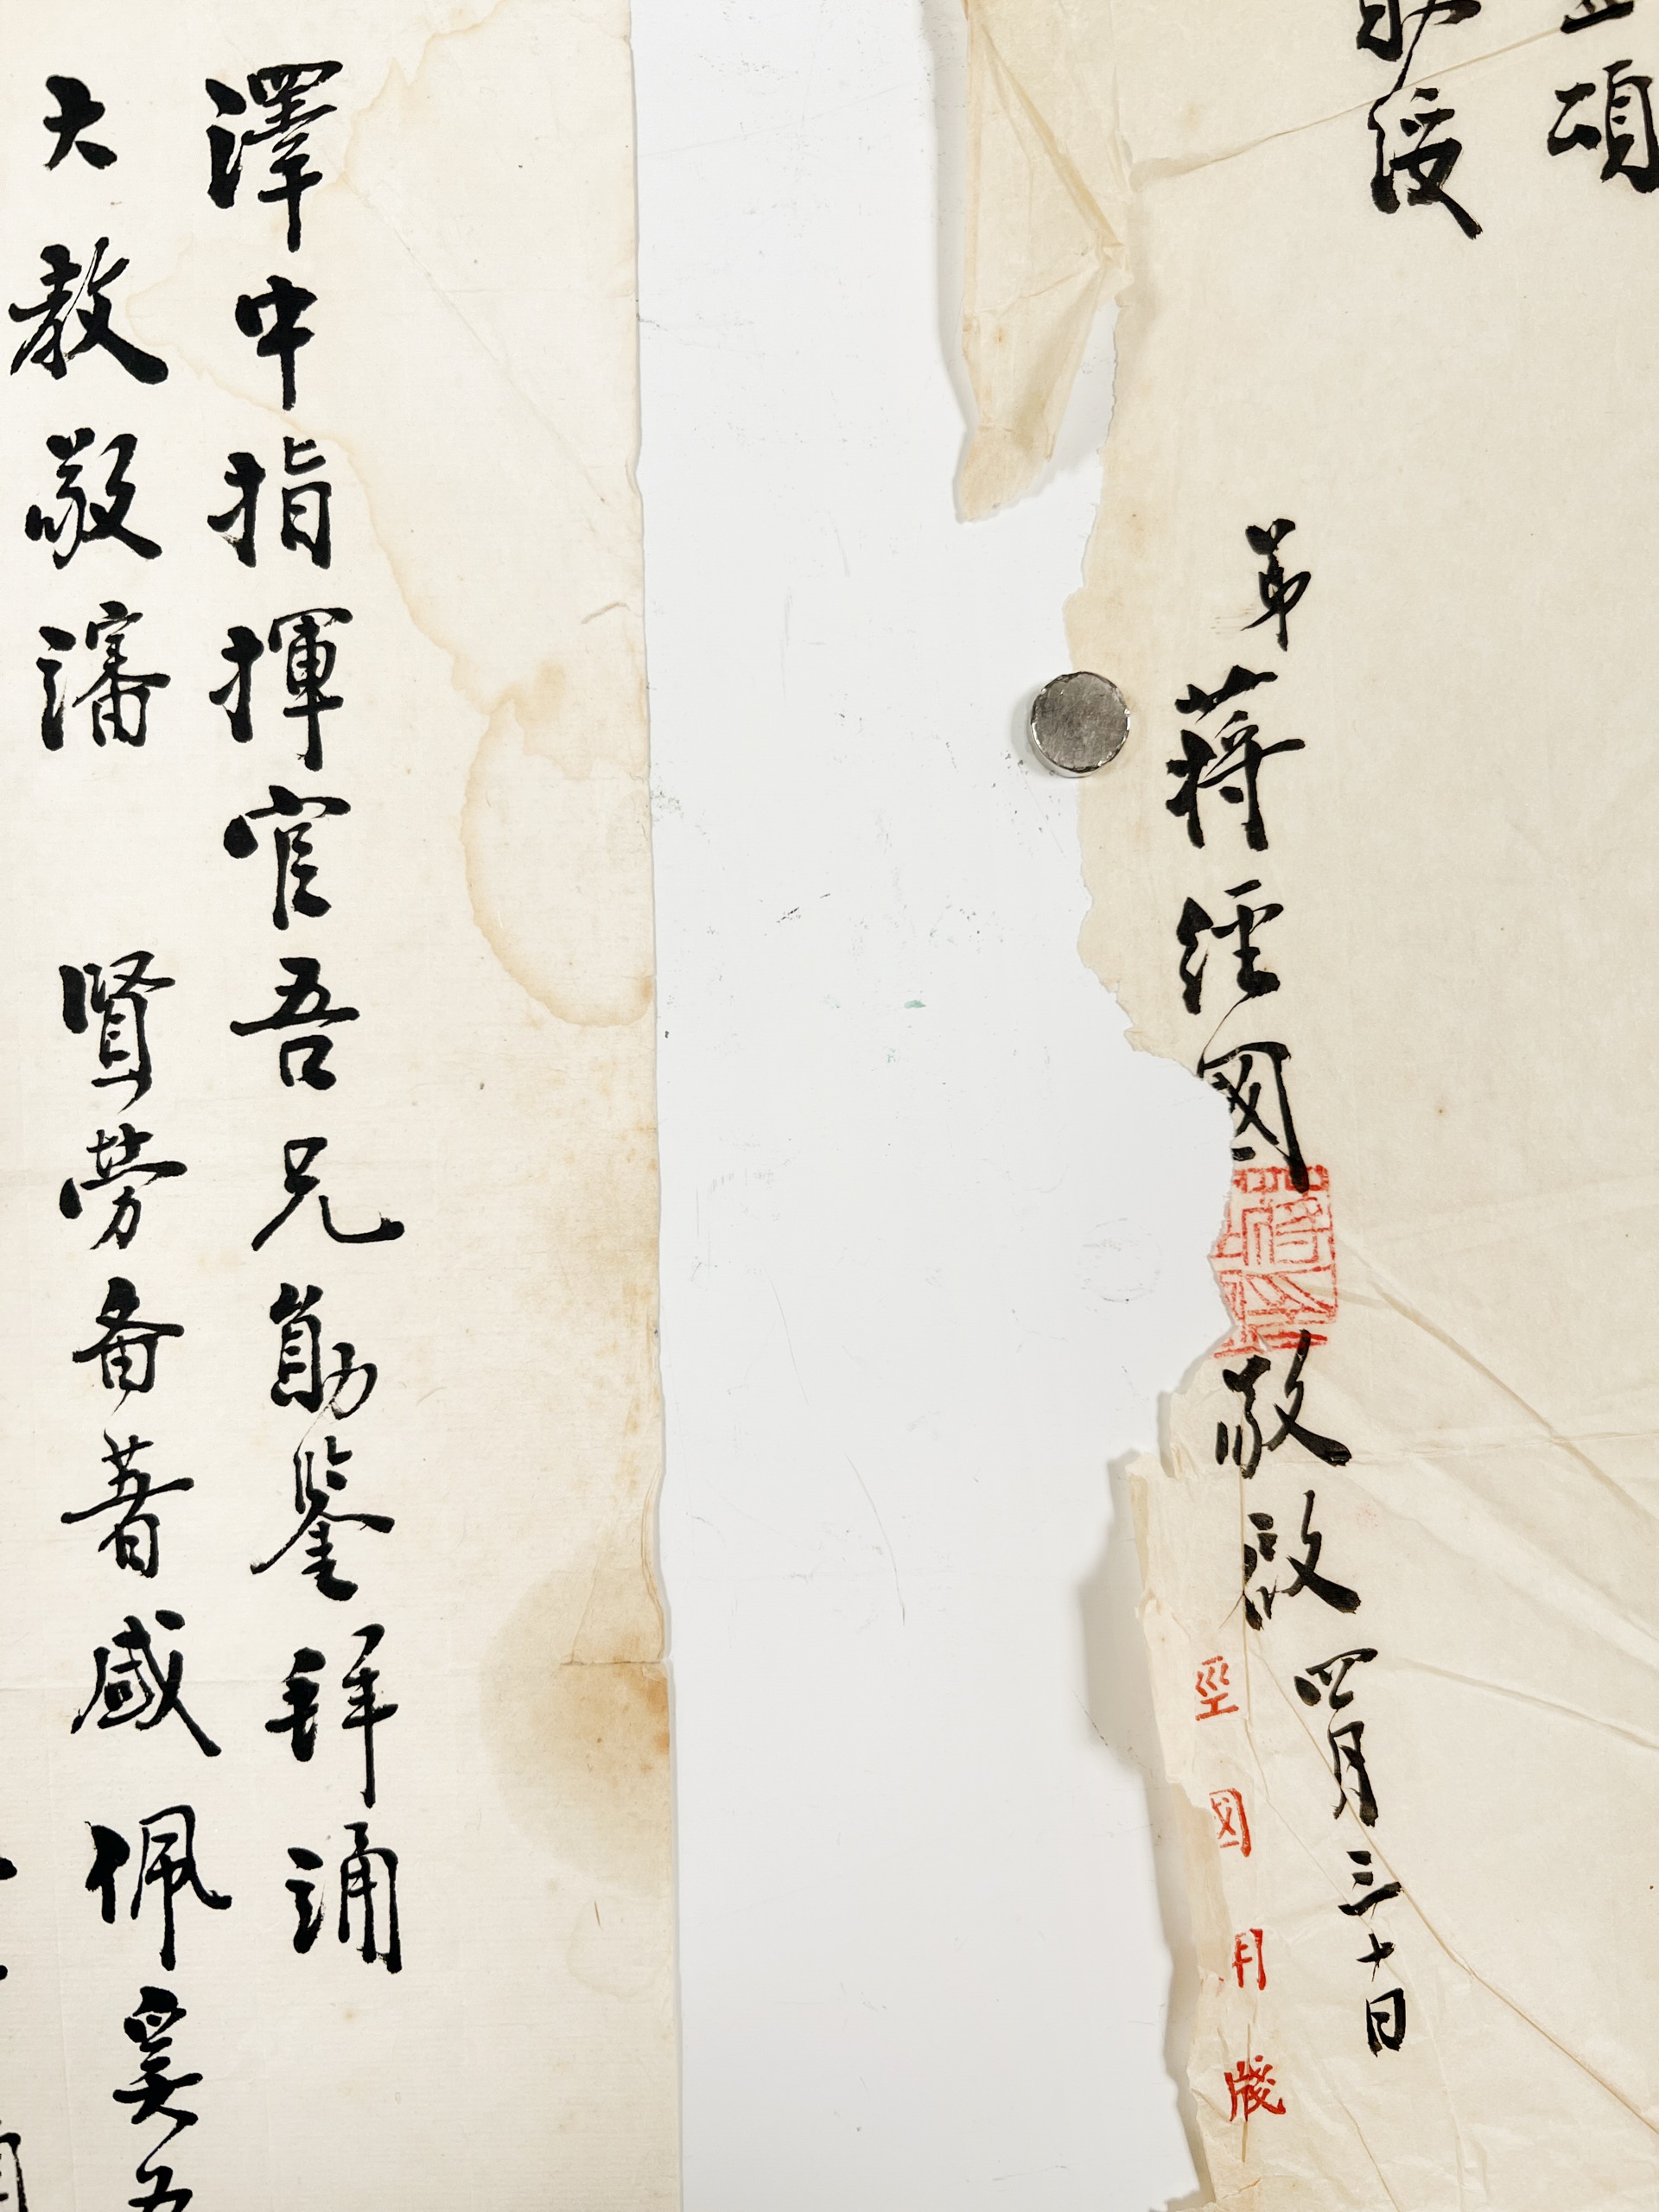 頌
勛綏
弟蔣經國敬啟四月三十日
蔣
經國用牋
澤中指揮官吾兄勛鑒拜誦
大教敬審 賢勞備著感佩奚